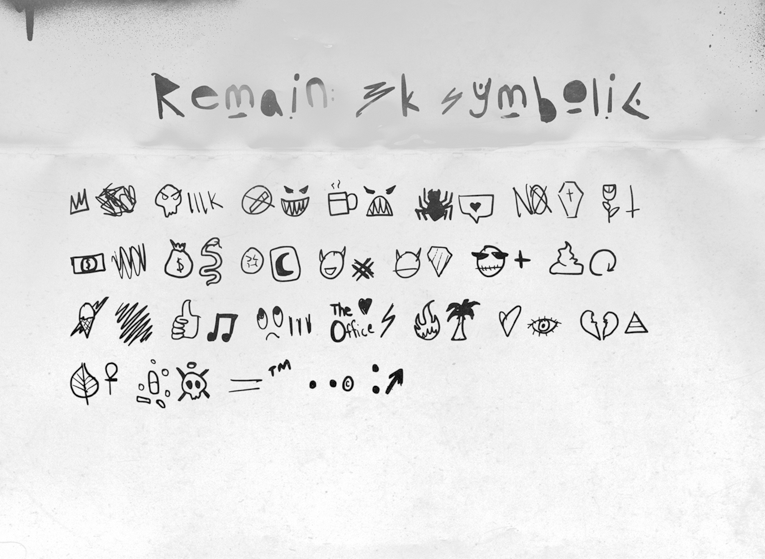 Remain: 3k symbolic
NO
The
Office
TM
©